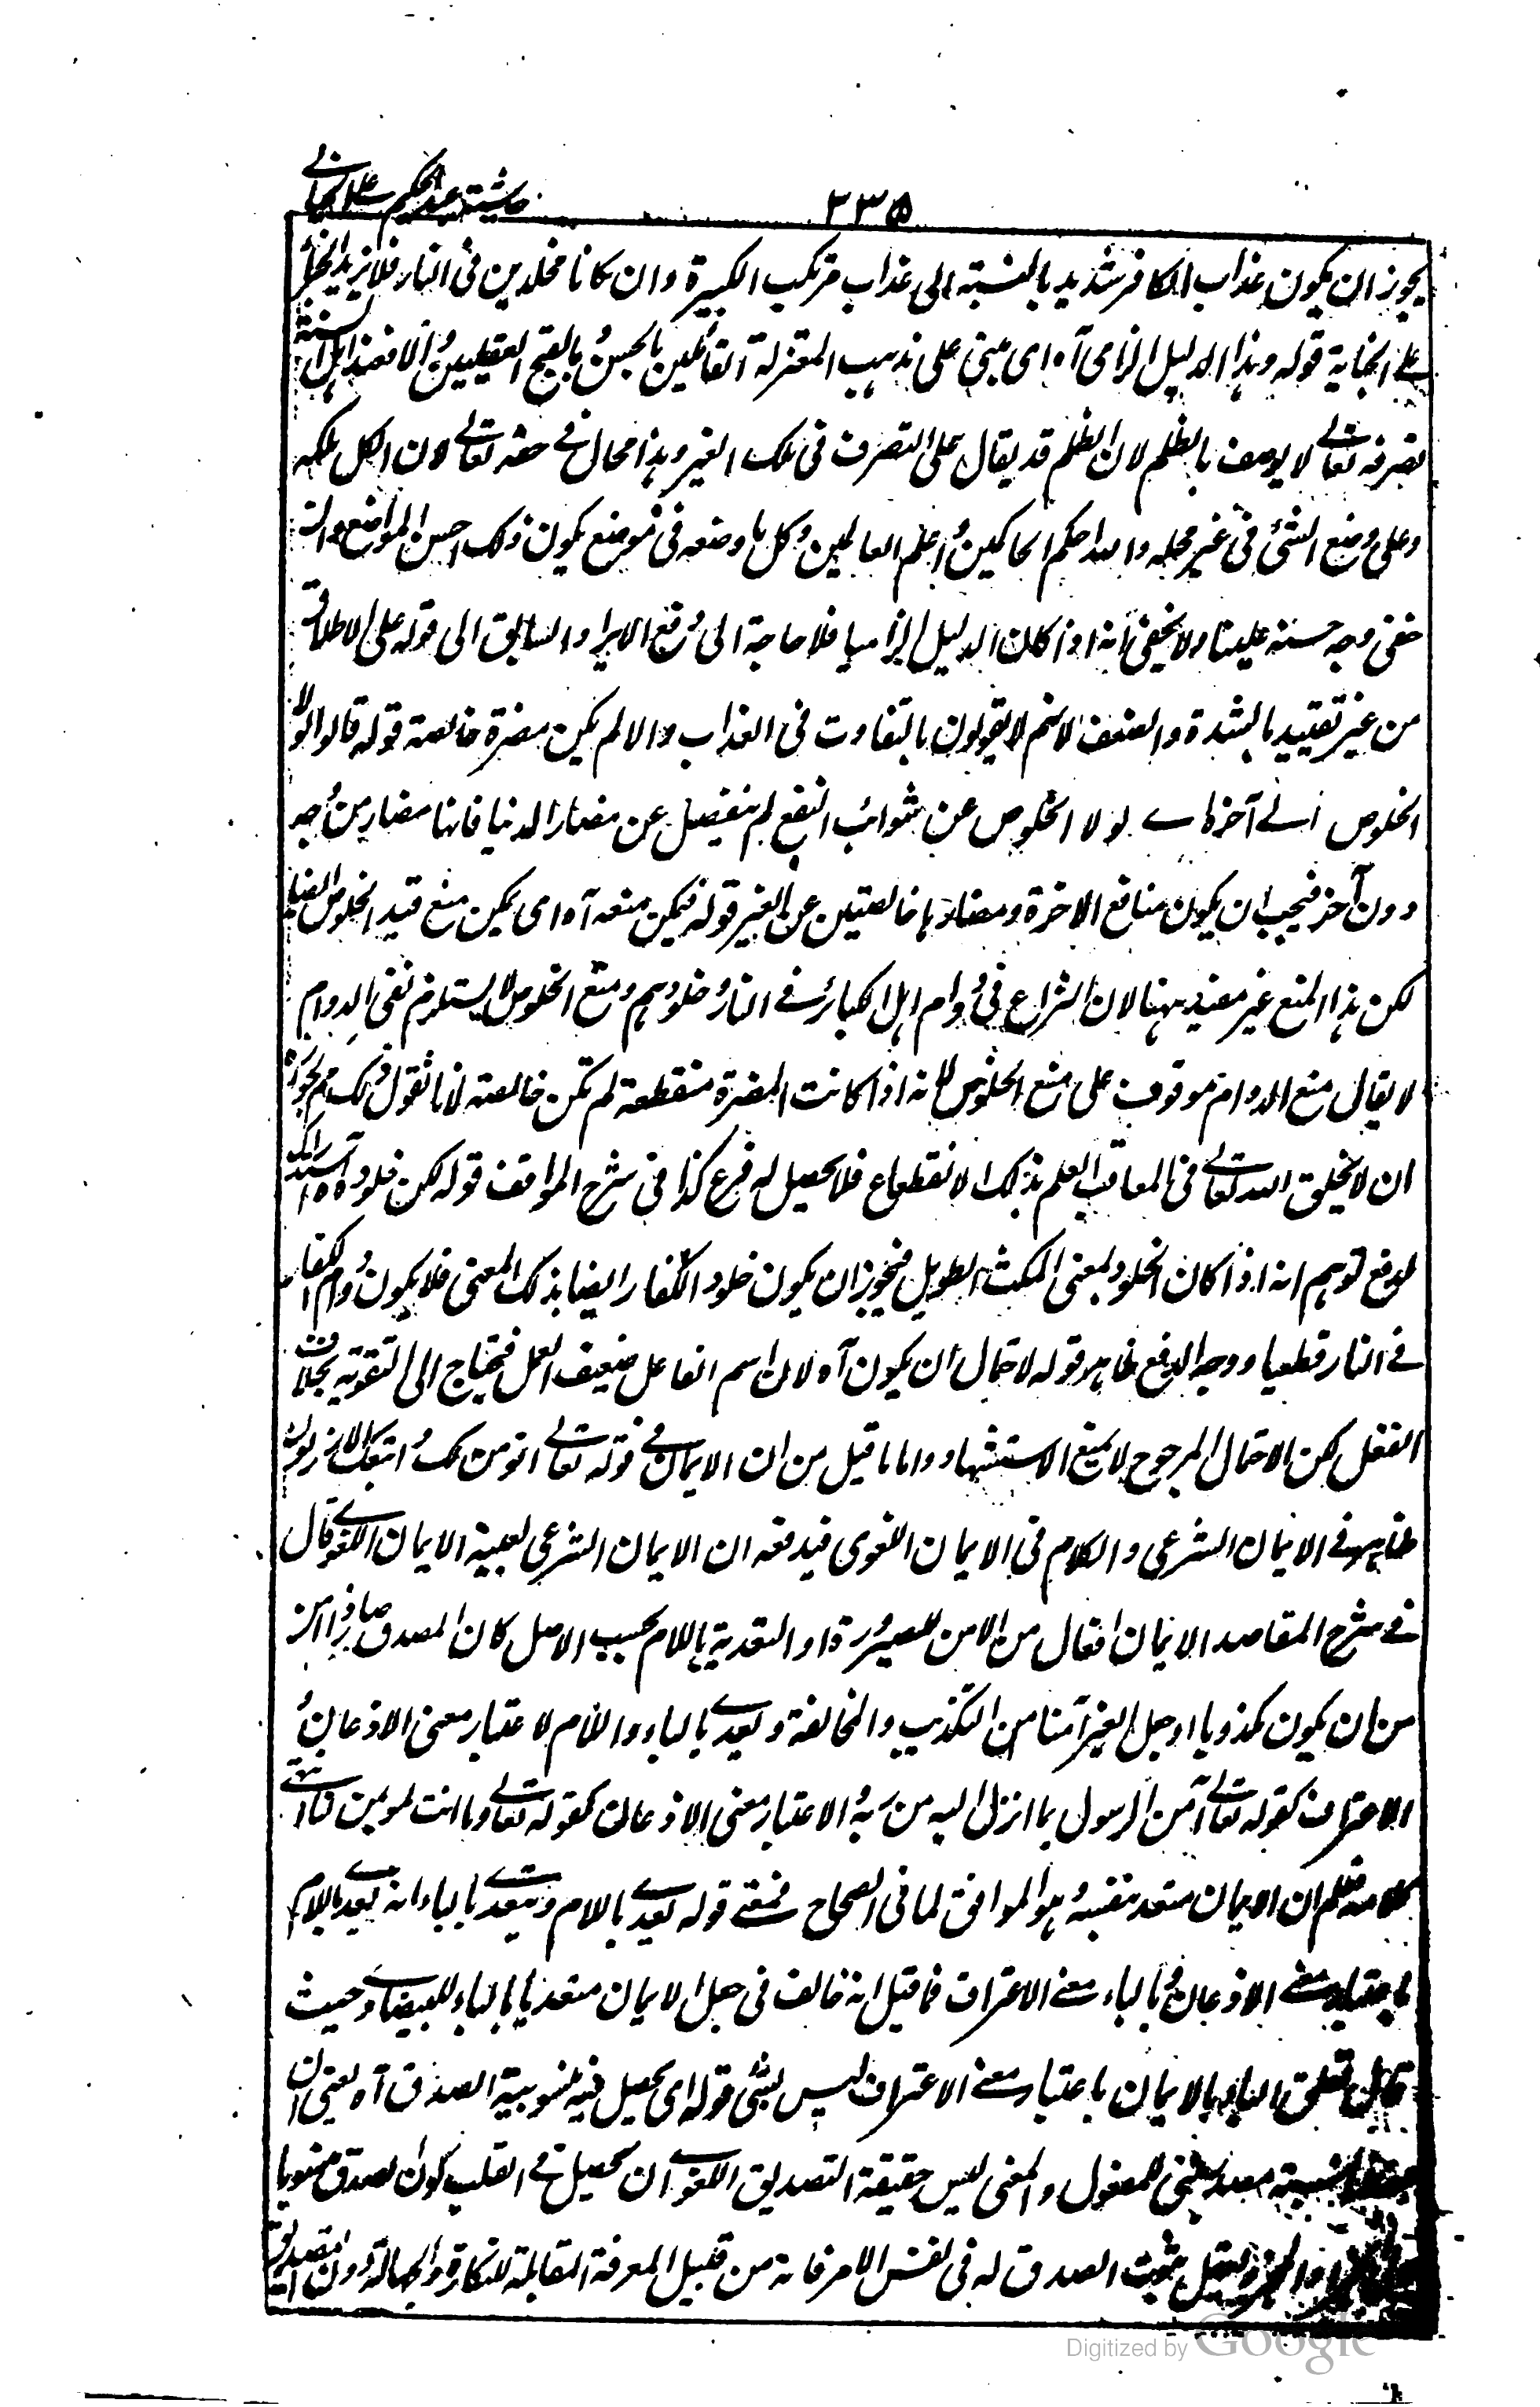 ٣٣٥
حاشية عبد الحكيم على الخيالى
يجوز ان يكون عذاب الكافر شديد بالنسبة الى عذاب مرتكب الكبيرة وان كانا مخلدين فى النار فلا يزيد الجزاء
على الجناية قوله وهذا الدليل الزامى آه اى مبنى على مذهب المعتزلة القائلين بالحسن والقبح العقليين والا فعند اهل السنة
تصرفه تعالى لا يوصف بالظلم لان الظلم قد يقال على التصرف فى ملك الغير وهذا محال فى حقه تعالى لان الكل ملكه
وعلى وضع الشئ فى غير محله والله احكم الحاكمين واعلم العالمين وكل ما وضعه فى موضع يكون ذلك احسن المواضع وان
خفى وجه حسنه علينا ولا يخفى انه اذا كان الدليل الزاميا فلا حاجة الى دفع الايراد السابق الى قوله على الاطلاق
من غير تقييد بالشدة والضعف لانهم لا يقولون بالتفاوت فى العذاب والا لم يكن مضرة خالصة قوله قالوا لولا
الخلوص الى آخره اى لولا الخلوص عن شوائب النفع لم ينفصل عن مضار الدنيا فانها مضار من وجه
دون آخر فيجب ان يكون منافع الاخرة ومضارها خالصتين عن الغير قوله فيمكن منعه آه اى يمكن منع قيد الخلوص ايضا
لكن هذا المنع غير مفيد ههنا لان النزاع فى دوام اهل الكبائر فى النار وخلودهم ومنع الخلوص لا يستلزم نفى الدوام
لا يقال منع الدوام موقوف على منع الخلوص لانه اذا كانت المضرة منقطعة لم تكن خالصة لانا نقول ذلك مم لجواز
ان لا يخلق الله تعالى فى المعاقب العلم بذلك الانقطاع فلا يحصل له فرح كذا فى شرح المواقف قوله لكن خلود آه استدراك
لدفع توهم انه اذا كان الخلود بمعنى المكث الطويل فيجوز ان يكون خلود الكفار ايضا بذلك المعنى فلا يكون دوام الكفار
فى النار قطعيا ووجه الدفع ظاهر قوله لاحتمال ان يكون آه لان اسم الفاعل ضعيف العمل فيحتاج الى التقوية بخلاف
الفعل لكن الاحتمال المرجوح لا يمنع الاستشهاد واما ما قيل من ان الايمان فى قوله تعالى انؤمن لك واتبعك الارذلون
ظاهر فى الايمان الشرعى والكلام فى الايمان اللغوى فيدفعه ان الايمان الشرعى بعينه الايمان اللغوى قال
فى شرح المقاصد الايمان افعال من الامن للصيرورة او التعدية باللام بحسب الاصل كان المصدق صار ذا امن
من ان يكون مكذوبا او جعل الغير آمنا من التكذيب والمخالفة ويعدى بالباء واللام لاعتبار معنى الاذعان و
الاعتراف كقوله تعالى آمن الرسول بما انزل اليه من ربه والاعتبار معنى الاذعان كقوله تعالى وما انت بمؤمن لنا انتهى
كلامه فعلم ان الايمان متعد بنفسه وهو الموافق لما فى الصحاح فمعنى قوله يعدى باللام ويتعدى بالباء انه يعدى باللام
باعتبار معنى الاذعان وبالباء معنى الاعتراف فما قيل انه خالف فى جعل الايمان متعديا بالباء للبيضاوى حيث
قال تعلق الباء بالايمان باعتبار معنى الاعتراف ليس بشئ قوله اى يحصل فيه منسوبية الصدق آه يعنى ان
النسبة مصدر مبنى للمفعول والمعنى ليس حقيقة التصديق اللغوى ان يحصل فى القلب كون الصدق منسوبا
الخبر ثبوت الصدق له فى نفس الامر فانه من قبيل المعرفة المقابلة للنكارة والجهالة دون التصديق